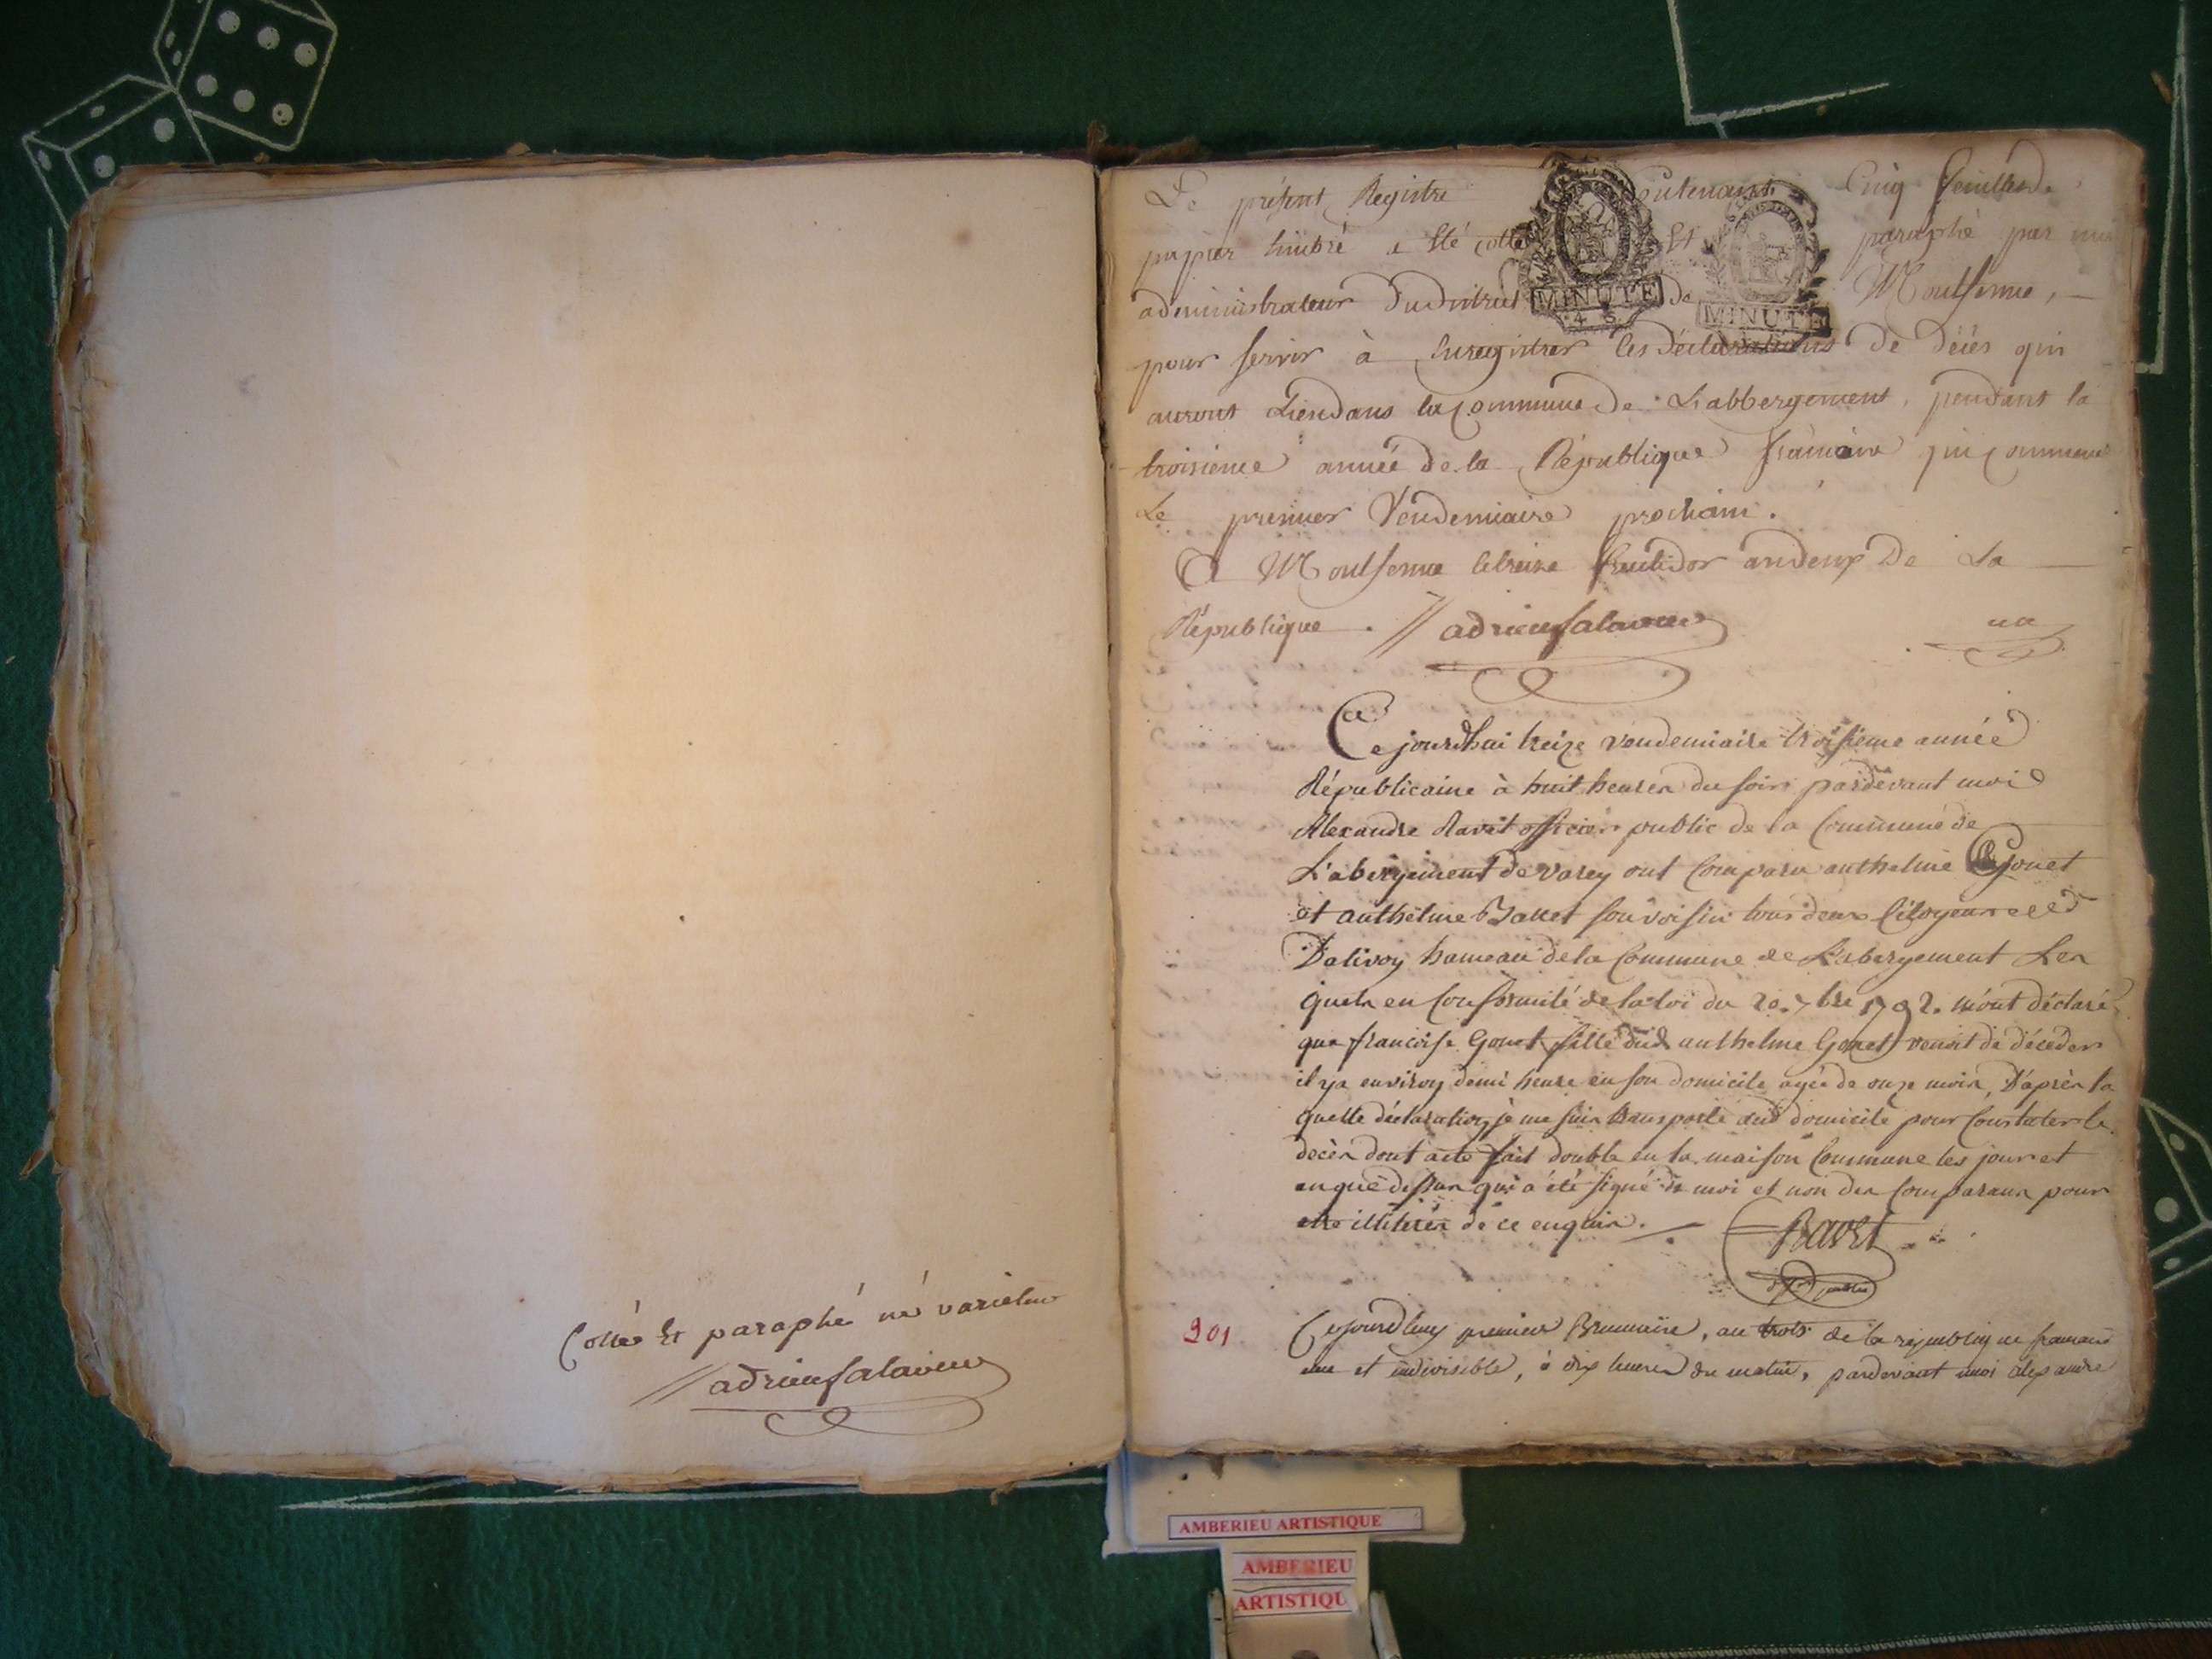 Cottés Et paraphé né varietur
adrien salavieu
Le présent Registre contenant Cinq feuilles de
papier timbré a été cotté Et paraphé par moi
administrateur du district de Montferme,
pour servir à Enregistrer les déclarations de décès qui
auront Lieu dans la commune de Labbergement, pendant la
troisième année de la République française qui commence
Le premier Vendemiaire prochain.
A Montferme le treize fructidor an deux De La
République. adrien salavieu un
MINUTE
4 S.
MINUTE
Ce jourdhui treize vendemiaire troisieme année
Républicaine à huit heures du soir pardevant moi
Alexandre Ravet officier public de la Commune de
L'abergement de varey ont Comparu anthelme Gonet
et anthelme Ballet son voisin tous deux Citoyens
Dalivoy hameau de la Commune de L'abergement Les
quels en Conformité de la loi du 20. 7bre 1792. m'ont déclaré
que francoise Gonet fille dud anthelme Gonet venoit de déceder
il y a environ demi heure en son domicile agée de onze mois, D'après la
quelle déclaration je me suis transporté aud domicile pour Constater le
decès dont acte fait double en la maison Commune les jour et
an que dessus qui a été signé de moi et non des Comparans pour
etre illiterés de ce enquis.
Ravet
off public
201 Cejourdhuy premier Brumaire, an trois de la republique francaise
une et indivisible, à dix heures du matin, pardevant moi alexandre
AMBERIEU ARTISTIQUE
AMBERIEU
ARTISTIQU